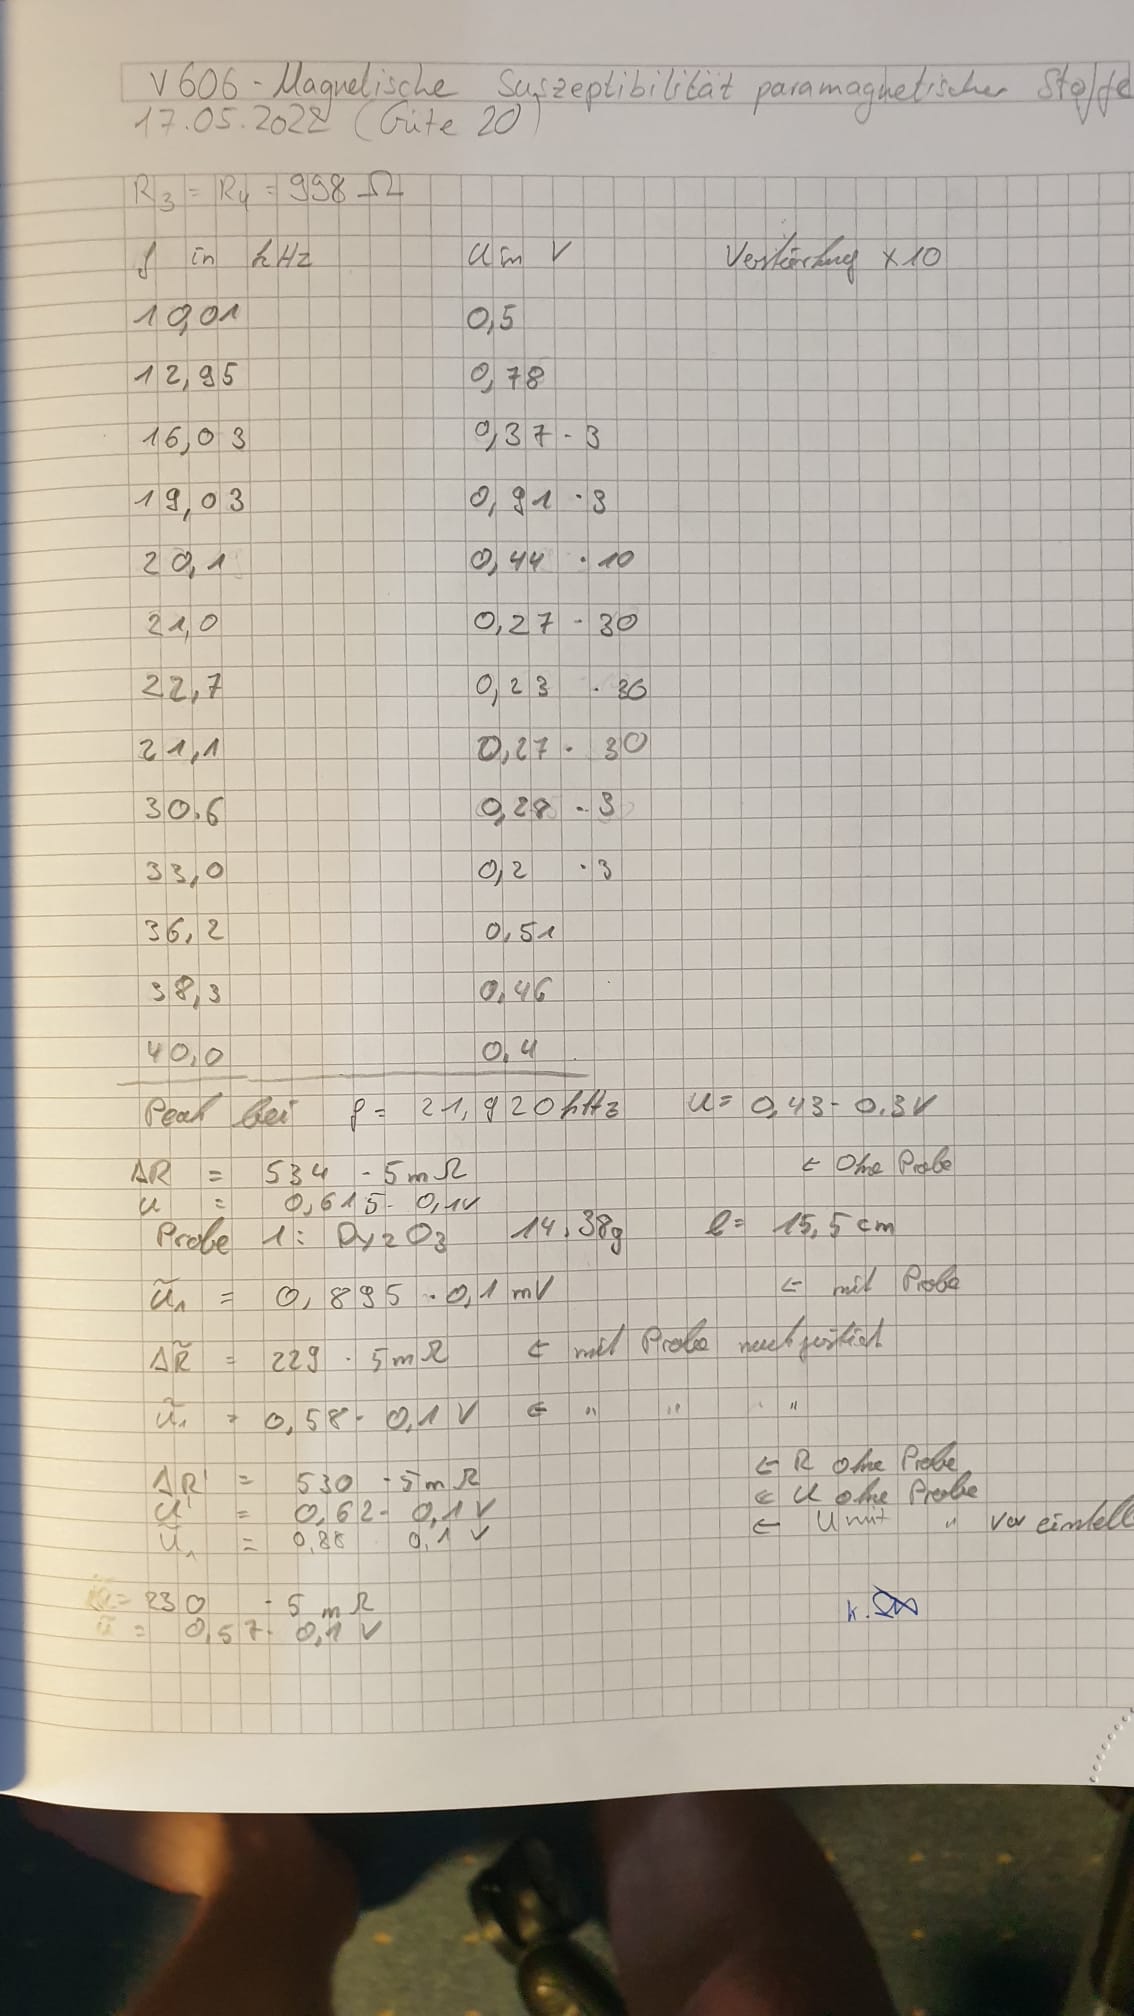 V606 - Magnetische Suszeptibilität paramagnetischer Stoffe
17.05.2022 (Güte 20)
R3 = R4 = 998 Ω
f in kHz U in V Verstärkung x10
10,01 0,5
12,95 0,78
16,03 0,37 · 3
19,03 0,91 · 3
20,1 0,44 · 10
21,0 0,27 · 30
22,7 0,23 · 30
21,1 0,27 · 30
30,6 0,28 · 3
33,0 0,2 · 3
36,2 0,51
38,3 0,46
40,0 0,4
Peak bei f = 21,920 kHz U = 0,43 · 0,3 V
ΔR = 534 · 5 mΩ ← Ohne Probe
U = 0,615 · 0,1 V
Probe 1: Dy2O3 14,38g l = 15,5 cm
Ũ1 = 0,895 · 0,1 mV ← mit Probe
ΔR̃ = 229 · 5 mΩ ← mit Probe
Ũ1 = 0,58 · 0,1 V ← " " "
ΔR' = 530 · 5 mΩ ← R ohne Probe
U' = 0,62 · 0,1 V ← U ohne Probe
Ũ1 = 0,88 0,1 V ← U mit " vor
= 230 · 5 mΩ
= 0,57 · 0,1 V